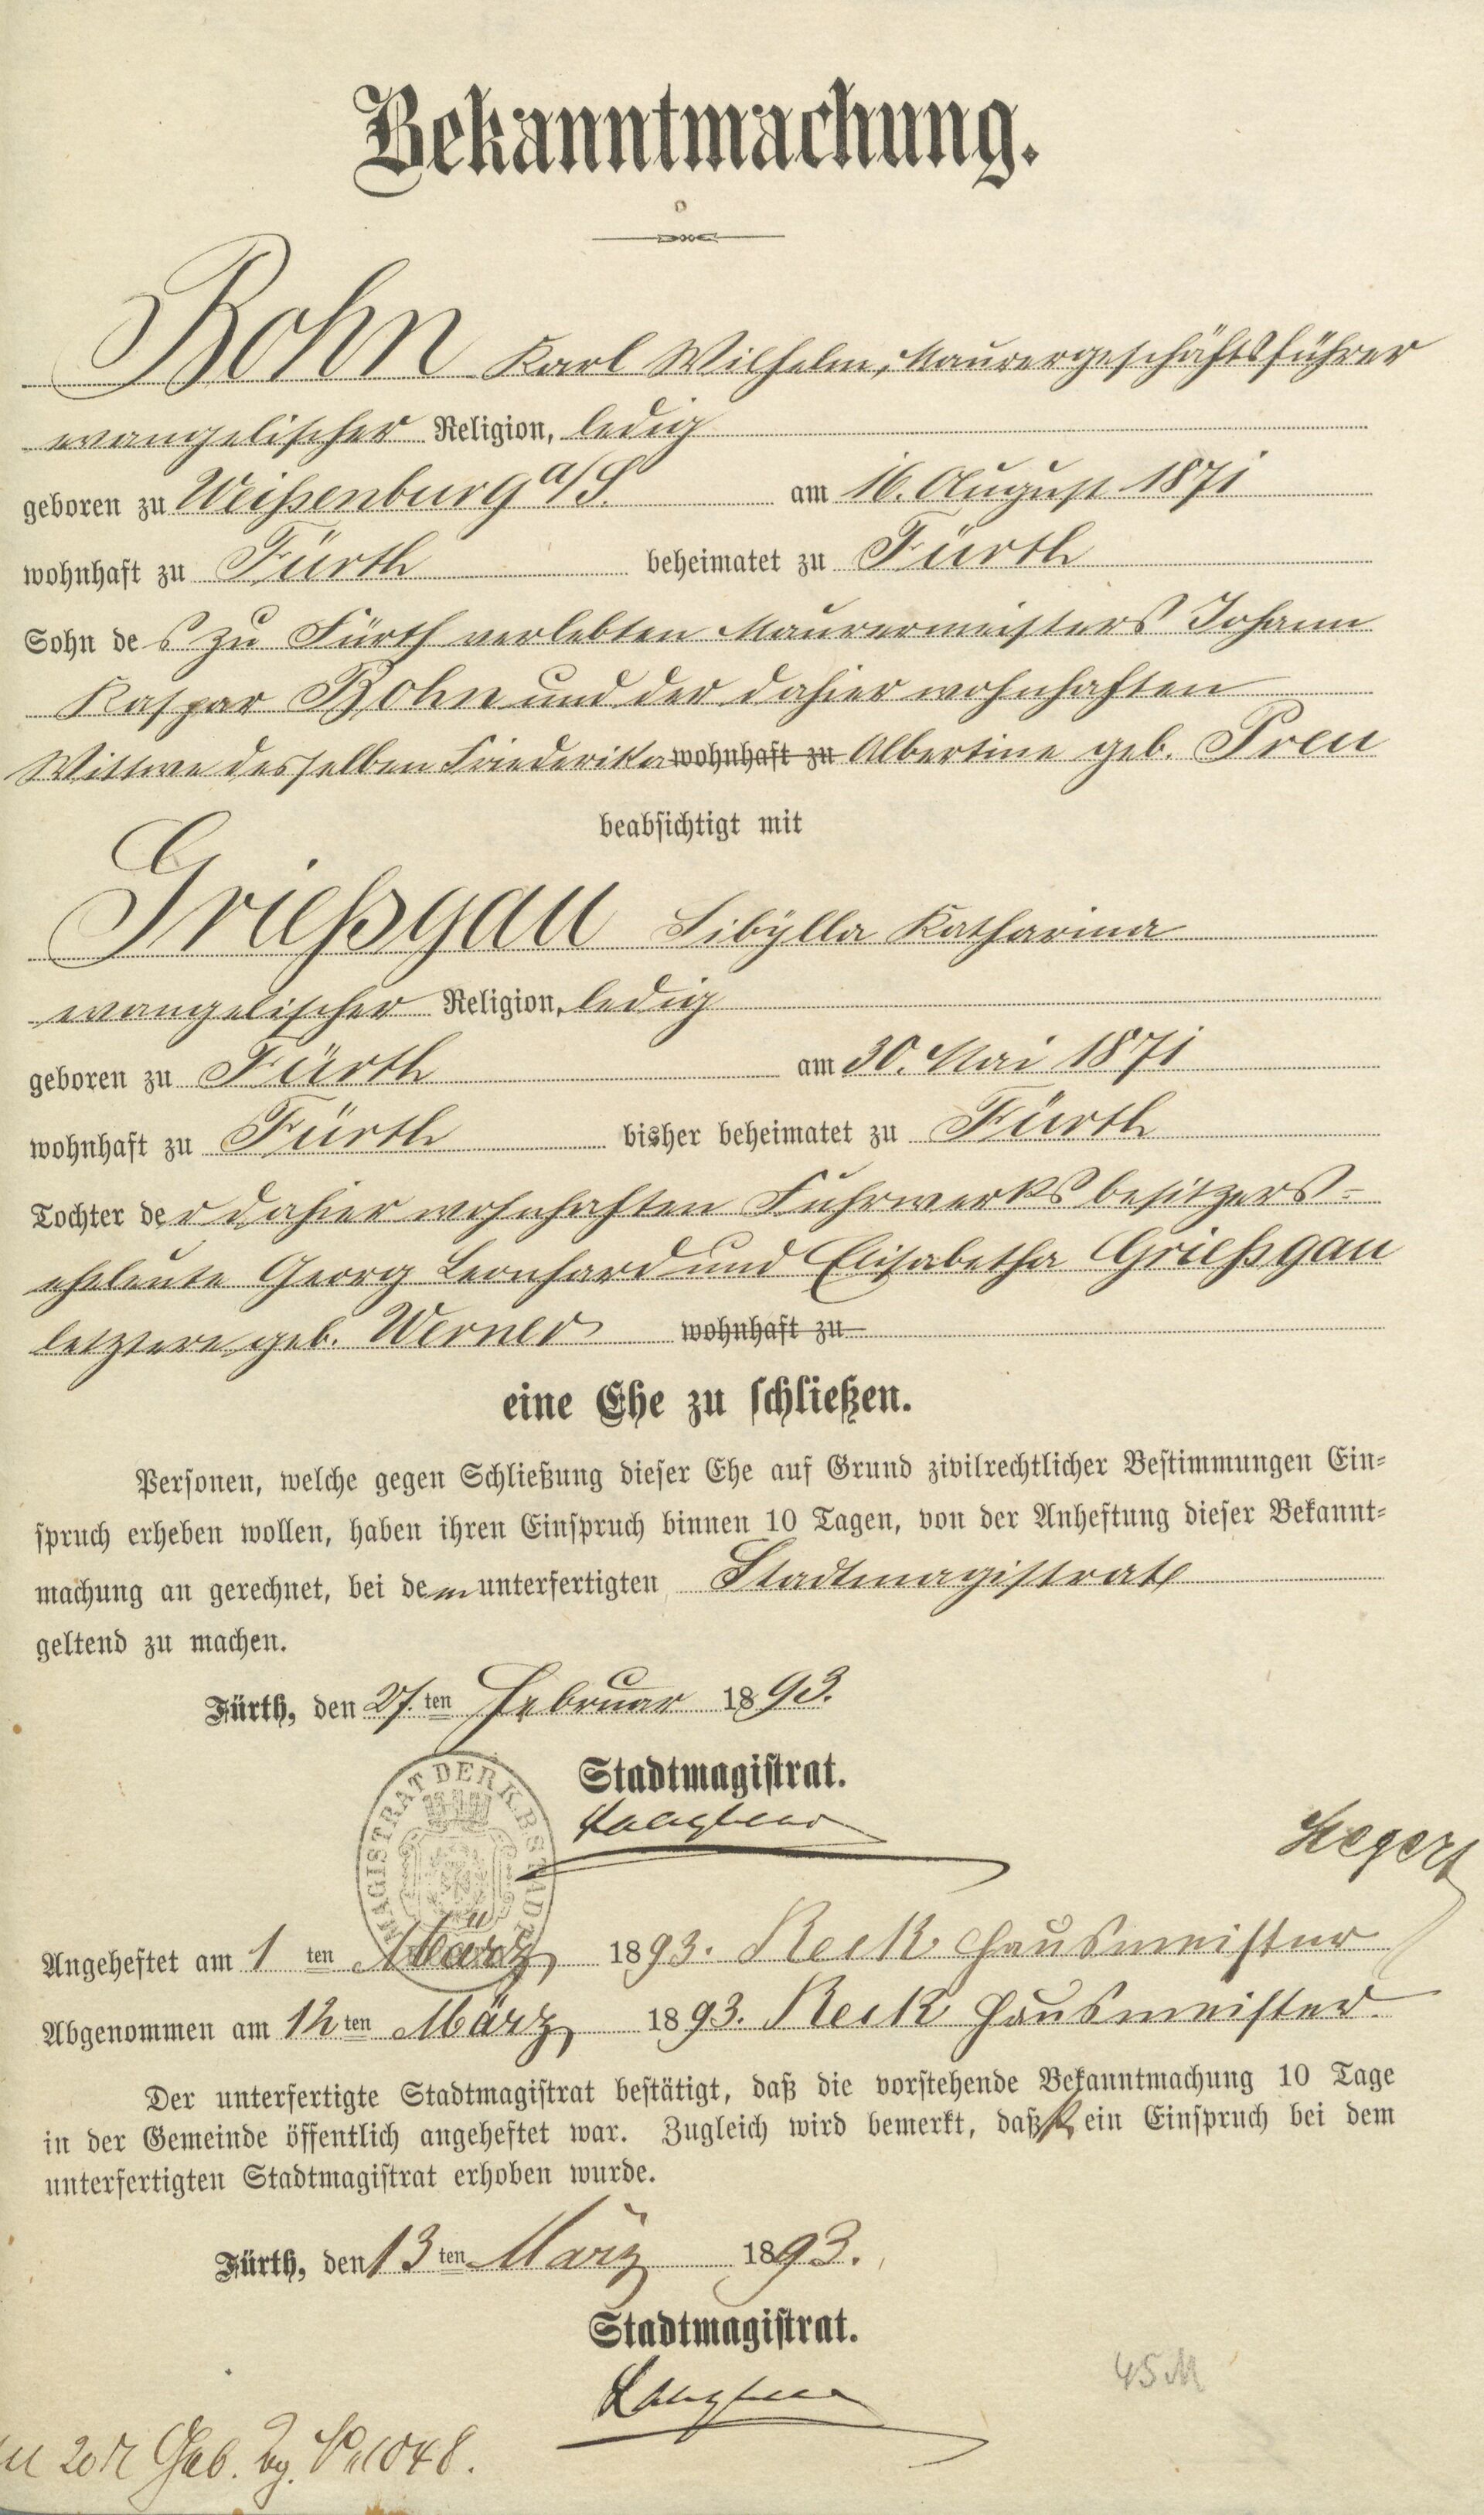 Bekanntmachung.
Bohn Karl Wilhelm, Maurergeschäftsführer
evangelischer Religion, ledig
geboren zu Weißenburg a/S. am 16. August 1871
wohnhaft zu Fürth beheimatet zu Fürth
Sohn des zu Fürth verlebten Maurermeisters Johann
Kaspar Bohn und der dahier wohnhaften
Wittwe desselben Friederika wohnhaft zu Albertine geb. Preu
beabsichtigt mit
Grießgau Sibÿlla Katharina
evangelischer Religion, ledig
geboren zu Fürth am 30. Mai 1871
wohnhaft zu Fürth bisher beheimatet zu Fürth
Tochter der dahier wohnhaften Fuhrwerksbesitzers-
eheleute Georg Leonhard und Elisabetha Grießgau
letztere geb. Werner wohnhaft zu
eine Ehe zu schließen.
Personen, welche gegen Schließung dieser Ehe auf Grund zivilrechtlicher Bestimmungen Ein-
spruch erheben wollen, haben ihren Einspruch binnen 10 Tagen, von der Anheftung dieser Bekannt-
machung an gerechnet, bei dem unterfertigten Stadtmagistrate
geltend zu machen.
Fürth, den 27. ten Februar 1893.
Stadtmagistrat.
MAGISTRAT DER K. B. STADT
Angeheftet am 1 ten März 1893. Reck Hausmeister
Abgenommen am 12 ten März 1893. Reck Hausmeister
Der unterfertigte Stadtmagistrat bestätigt, daß die vorstehende Bekanntmachung 10 Tage
in der Gemeinde öffentlich angeheftet war. Zugleich wird bemerkt, daß kein Einspruch bei dem
unterfertigten Stadtmagistrat erhoben wurde.
Fürth, den 13 ten März 1893.
Stadtmagistrat.
45 M